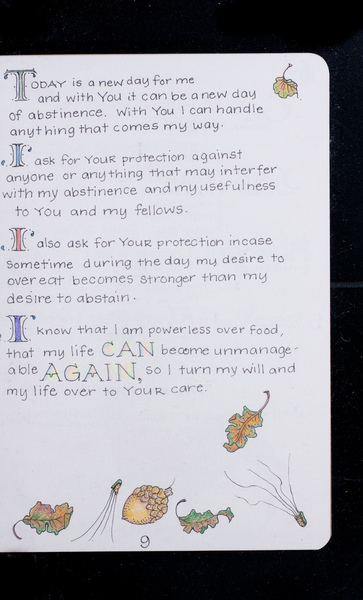 TODAY is a new day for me
and with You it can be a new day
of abstinence. With You I can handle
anything that comes my way.
I ask for YOUR protection against
anyone or anything that may interfer
with my abstinence and my usefulness
to You and my fellows.
I also ask for YOUR protection incase
sometime during the day my desire to
overeat becomes stronger than my
desire to abstain.
I know that I am powerless over food,
that my life CAN become unmanage-
able AGAIN, so I turn my will and
my life over to YOUR care.
9